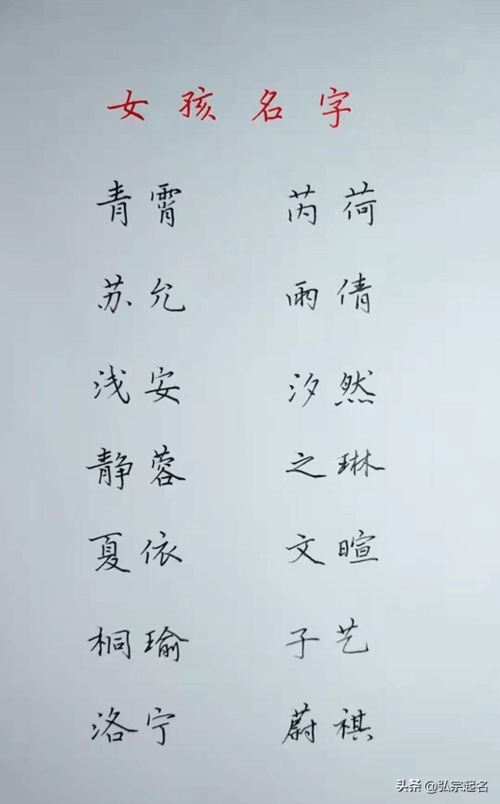 女孩名字
青霄 芮荷
苏允 雨倩
浅安 汐然
静蓉 之琳
夏依 文暄
桐瑜 子艺
洛宁 蔚祺
头条@弘宗起名